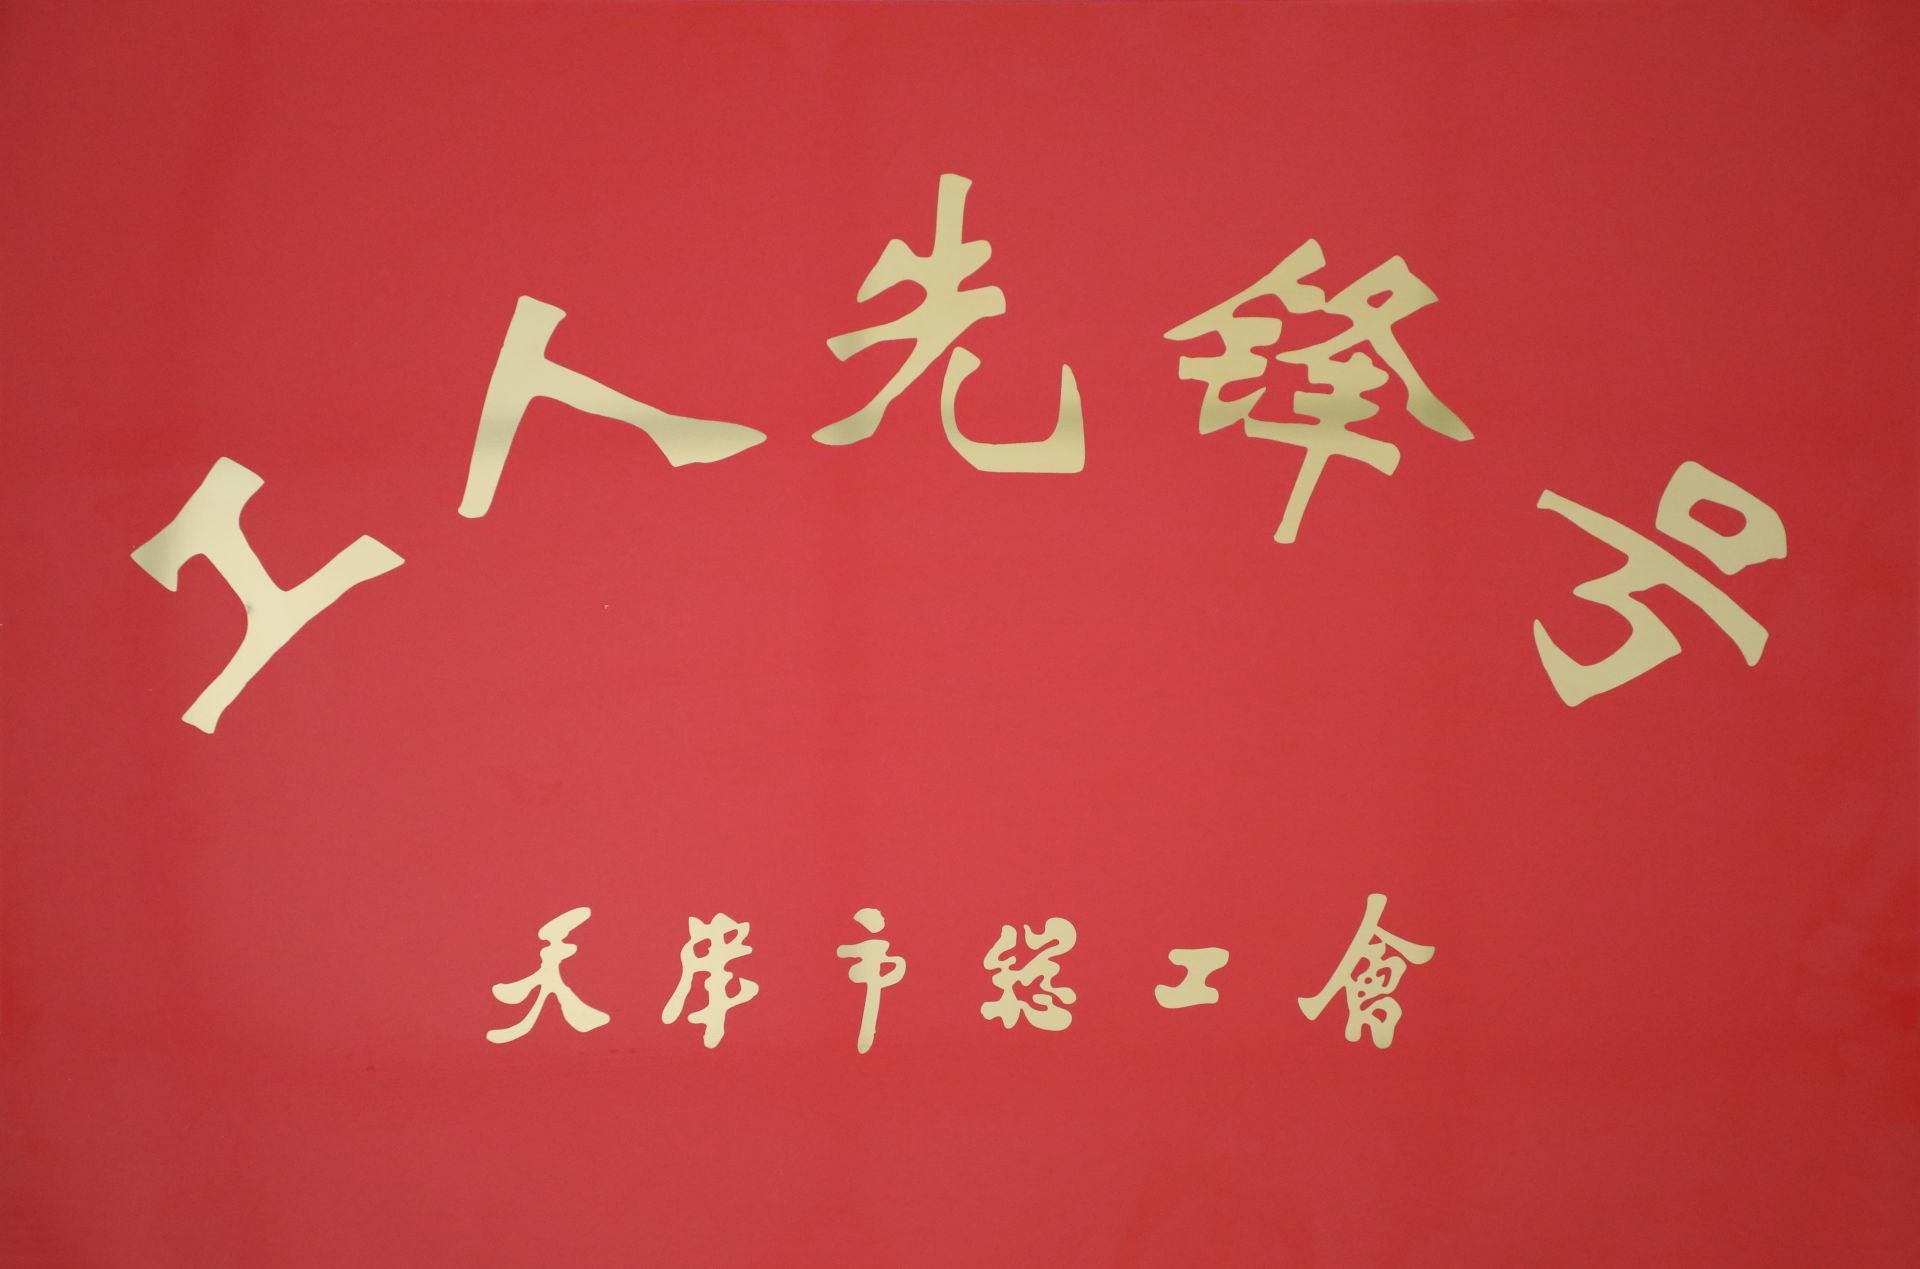 工人先锋号
天津市総工會